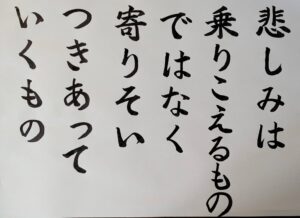 悲しみは
乗りこえるもの
ではなく
寄りそい
つきあって
いくもの